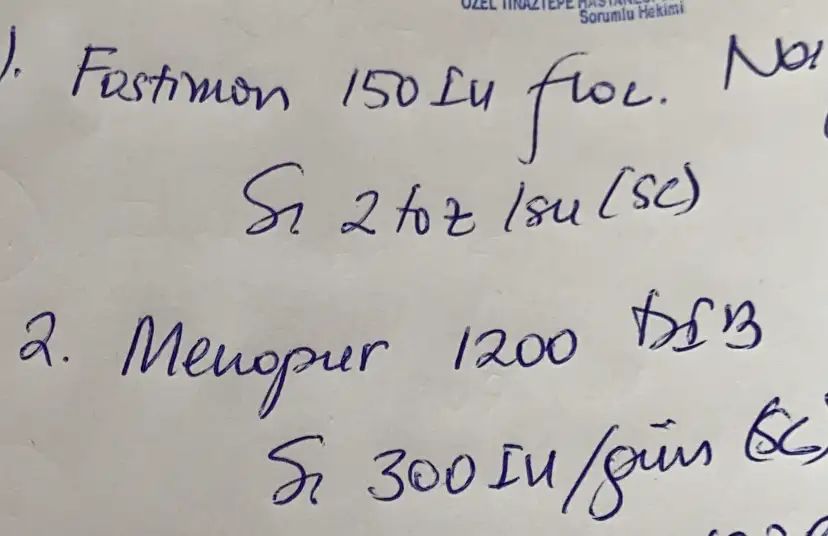 ÖZEL TINAZTEPE HASTANESİ
Sorumlu Hekimi
1. Fostimon 150 IU flac. No:
S: 2 toz 1su (SC)
2. Menopur 1200
S: 300 IU/gün (SC)